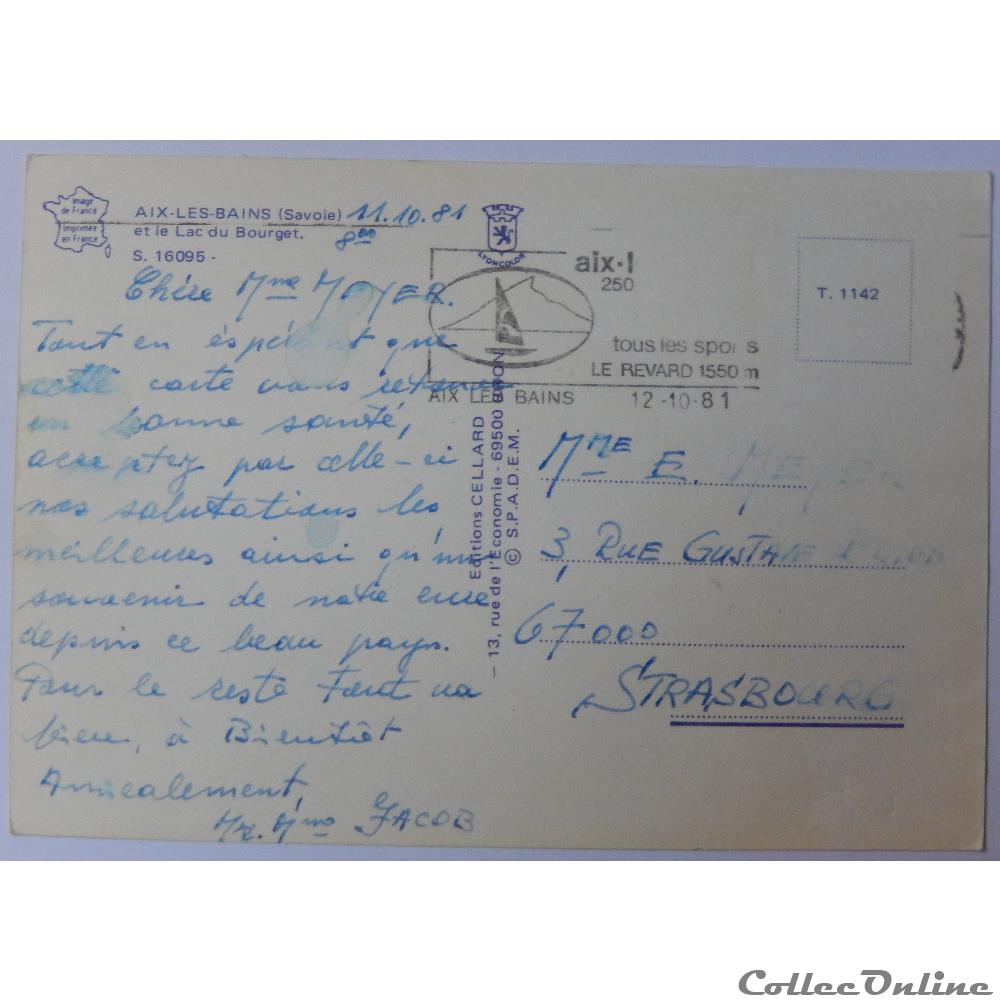 Image
de France
Imprimée
en France
AIX-LES-BAINS (Savoie) 11.10.81
et le Lac du Bourget. 8°°
S. 16095 -
Chére Mme MOYER.
Tout en éspérant que
cette carte vous
en bonne santé,
acceptez par celle-ci
nos salutations les
meilleures ainsi qu'un
souvenir de notre cure
depuis ce beau pays.
Pour le reste Tout va
bien, à Bientôt
Amicalement,
Mr. Mme JACOB
LYONCOLOR
Editions CELLARD
— 13, rue de l'Économie - 69500 BRON
© S.P.A.D.E.M.
aix·l
250
tous les spor s
LE REVARD 1550 m
AIX LES BAINS 12-10-81
T. 1142
MME E. MEYER
3, RUE GUSTAVE
67000
STRASBOURG
CollecOnline